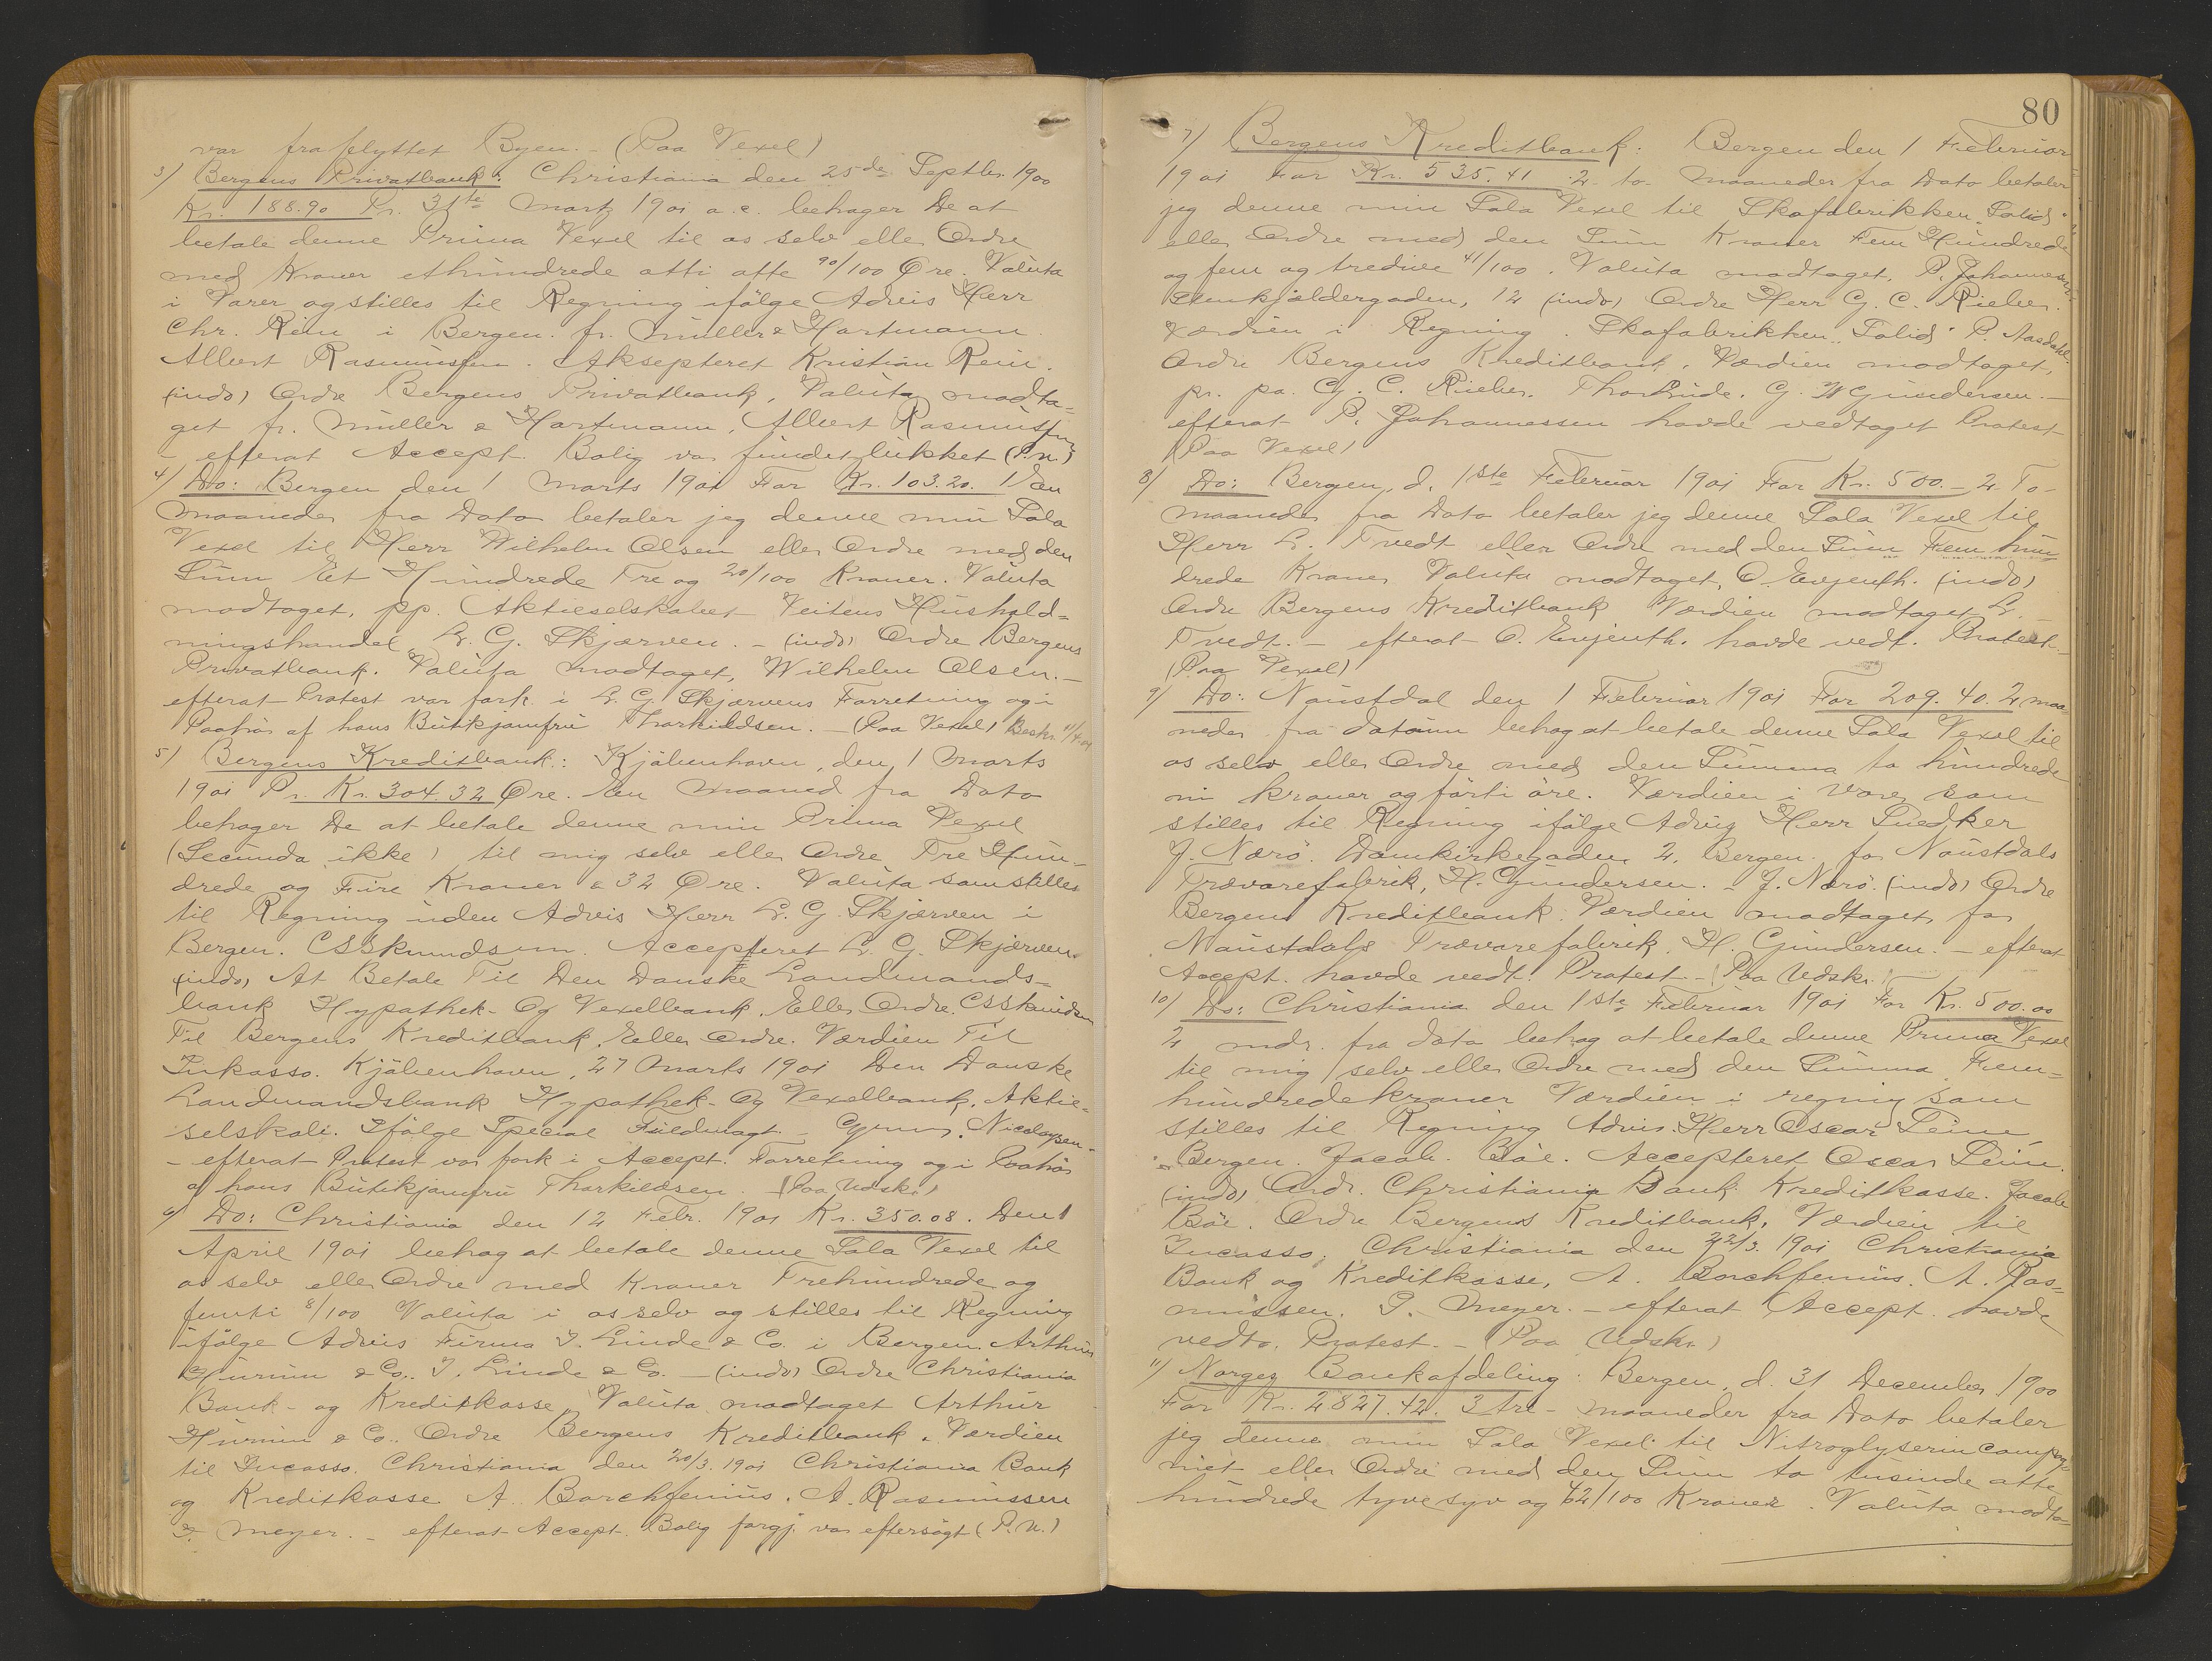 var fraflyttet Byen. - (Paa Vexel)
3) Bergens Privatbank: Christiania den 25de Septbr. 1900
Kr. 188.90 Pr. 31te Marts 1901 a.c. behager De at
betale denne Prima Vexel til os selv eller Ordre
med Kroner ethundrede otti otte 90/100 Øre. Valuta
i Varer og stilles til Regning ifølge Advis Herr
Chr. Rein i Bergen. fr. Müller & Hartmann
Albert Rasmussen. Aksepteret Kristian Rein.
(indo) Ordre Bergens Privatbank, Valuta modta-
get fr. Müller & Hartmann, Albert Rasmussen
- efterat Accept. Bolig var fundet lukket (P.N.)
4) Do: Bergen den 1 Marts 1901 For Kr. 103.20. 1 Een
Maaneder fra Dato betaler jeg denne min Sola
Vexel til Herr Wilhelm Olsen eller Ordre med den
Sum Et Hundrede Tre og 20/100 Kroner. Valuta
modtaget, pp. Aktieselskabet Veitens Hushold-
ningshandel L. G. Skjærven. - (indo) Ordre Bergens
Privatbank. Valuta modtaget, Wilhelm Olsen. -
efterat Protest var fork. i L. G. Skjærvens Forretning og i
Paahör af hans Butikjomfru Thorkildsen. - (Paa Vexel) Beskr. 11/4.01
5) Bergens Kreditbank: Kjöbenhavn, den 1 Marts
1901 Pr. Kr. 304.32 Øre. Een Maaned fra Dato
behager De at betale denne min Prima Vexel
(Secunda ikke) til mig selv eller Ordre Tre Hun-
drede og Fire Kroner & 32 Øre. Valuta som stilles
til Regning uden Advis Herr L. G. Skjærven i
Bergen. CSSkundsen. Accepteret L. G. Skjærven.
(indo) At Betale Til Den Danske Landmands-
bank Hypothek- Og Vexelbank. Eller Ordre. CSSkundsen
Til Bergens Kreditbank. Eller Ordre. Værdien Til
Inkasso. Kjöbenhavn, 27 Marts 1901 Den Danske
Landmandsbank Hypothek- Og Vexelbank, Aktie-
selskab. Ifölge Special Fuldmagt - Nicolaysen
- efterat Protest var fork i Accept. Forretning og i Paahör
af hans Butikjomfru Thorkildsen. (Paa Udskr.)
6) Do: Christiania den 12 Febr. 1901 Kr. 350.08. Den 1
April 1901 behag at betale denne Sola Vexel til
os selv eller Ordre med Kroner Trehundrede og
femti 8/100 Valuta i os selv og stilles til Regning
ifölge Advis Firma I. Linde & Co. i Bergen. Arthur
Hurum & Co. I. Linde & Co. - (indo) Ordre Christiania
Bank- og Kreditkasse, Valuta modtaget Arthur
Hurum & Co. Ordre Bergens Kreditbank. Værdien
til Incasso. Christiania den 20/3. 1901 Christiania Bank
og Kreditkasse A. Borchfenius. A. Rasmussen
Meyer. - efterat Accept. Bolig forgj. var eftersögt (P.N.)
80
7) Bergens Kreditbank: Bergen den 1 Februar
1901 For Kr. 535.41. 2 to Maaneder fra Dato betaler
jeg denne min Sola Vexel til Skofabrikken "Solid"
eller Ordre med den Sum Kroner Fem Hundrede
og fem og tredive 41/100. Valuta modtaget, P. Johannessen
Stenkjældergaden, 12 (indo) Ordre Herr G. C. Rieber.
Værdien i Regning. Skofabrikken "Solid" P. Aasdahl.
Ordre Bergens Kreditbank. Værdien modtaget,
pr. pa. G. C. Rieber. G. W Gundersen. -
efterat P. Johannessen havde vedtaget Protest
(Paa Vexel)
8) Do: Bergen, d. 1ste Februar 1901 For Kr. 500. - 2 To -
Maaneder fra Dato betaler jeg denne Sola Vexel til
Herr L. Tvedt eller Ordre med den Sum Fem hun
drede Kroner Valuta modtaget, O. Enjenth. (indo)
Ordre Bergens Kreditbank Værdien modtaget L.
Tvedt. - efterat O. Enjenth. havde vedt. Protest. -
(Paa Vexel)
9) Do: Naustdal den 1 Februar 1901 For 209.40. 2 maa-
neder fra datum behag at betale denne Sola Vexel til
os selv eller Ordre med den Summa to hundrede
ni kroner og förti öre. Værdien i Varer som
stilles til Regning ifölge Advis Herr Snedker
J. Nærö. Domkirkegaden 2, Bergen. for Naustdals
Trævarefabrik, H. Gundersen. - J. Nærö. (indo) Ordre
Bergens Kreditbank. Værdien modtaget, for
Naustdals Trævarefabrik. H. Gundersen. - efterat
Accept. havde vedt. Protest - (Paa Udskr.)
10) Do: Christiania den 1ste Februar 1901 For Kr. 500.00
2 mdr. fra dato behag at betale denne Prima Vexel
til mig selv eller Ordre med den Summa Fem-
hundredekroner Værdien i regning som
stilles til Regning Advis. Herr Oscar
Bergen. Jacob. Böe. Accepteret Oscar
(indo) Ordr. Christiania Bank Kreditkasse. Jacob
Böe. Ordre Bergens Kreditbank, Værdien til
Incasso. Christiania den 22/3. 1901 Christiania
Bank og Kreditkasse, A. Borchfenius. A. Ras-
mussen. Meyer. - efterat Accept. havde
vedto. Protest. - (Paa Udskr.)
11) Norges Bankafdeling: Bergen, d. 31 December 1900
For Kr. 2827.42. 3 tre - Maaneder fra Dato betaler
jeg denne min Sola Vexel til Nitroglyserincompag-
niet eller Ordre med den Sum to tusinde otte
hundrede tyve syv og 42/100 Kroner. Valuta modta-